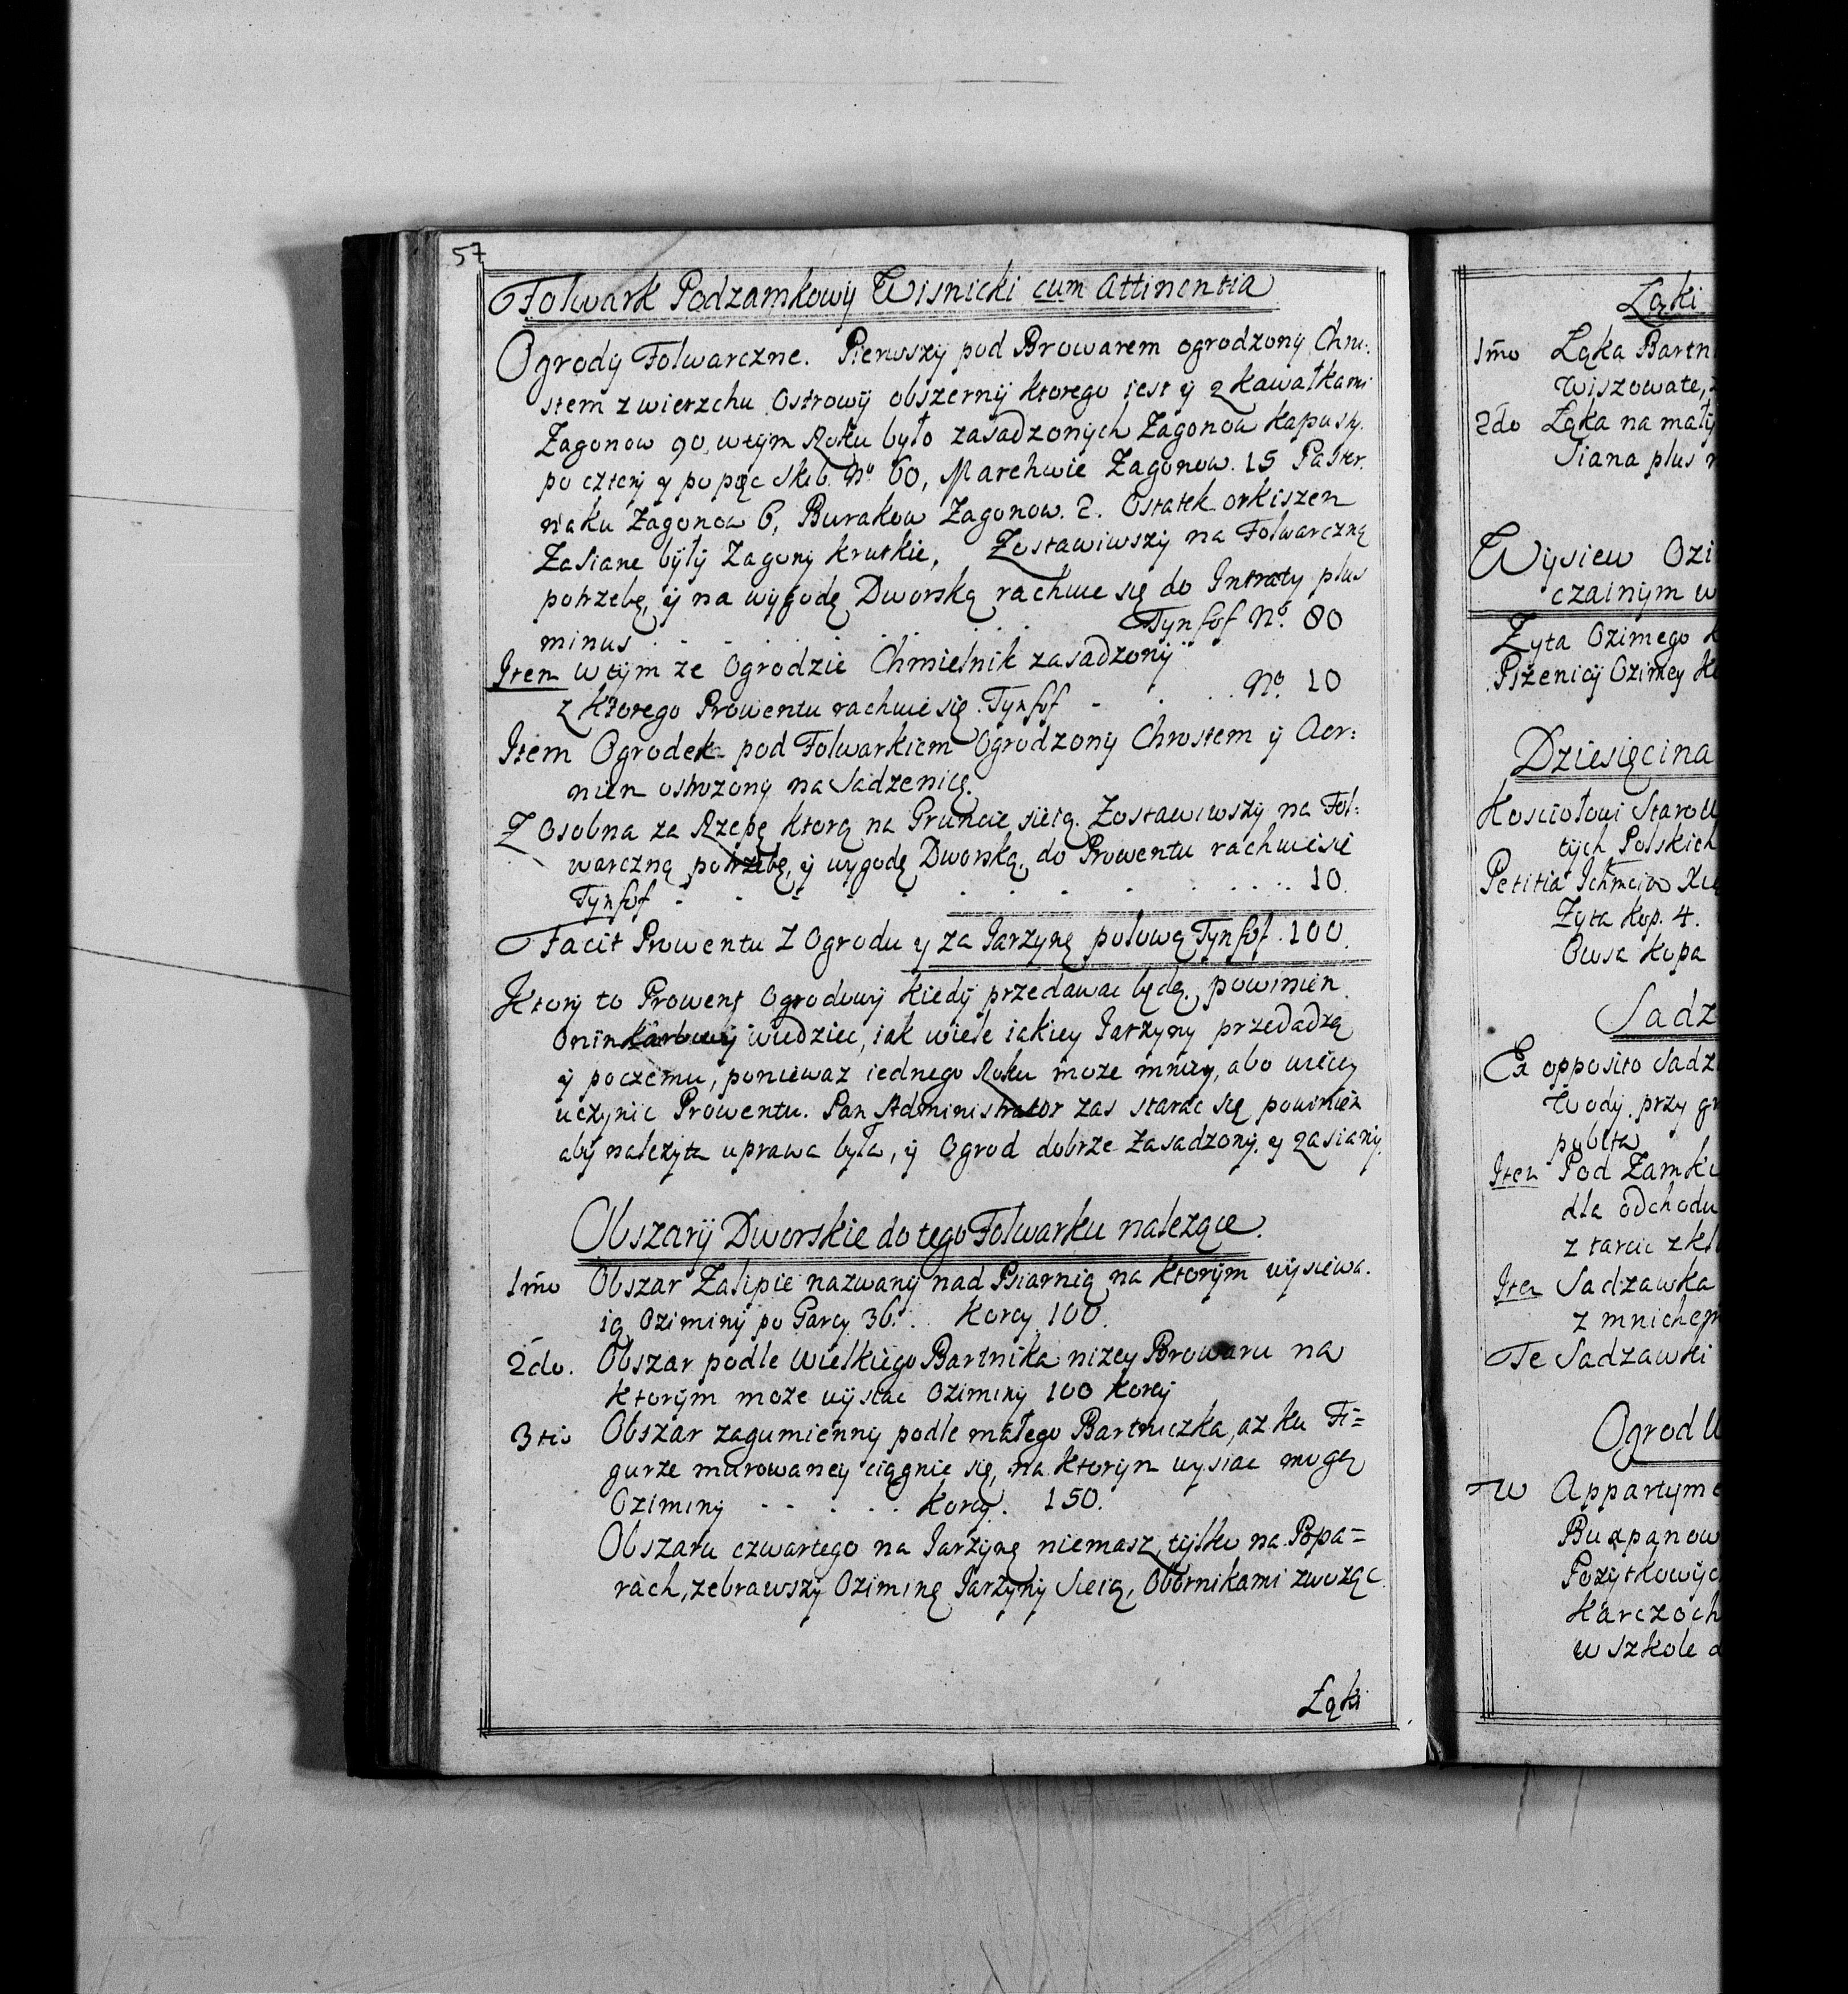 57
Folwark Podzamkowy Wisnicki cum Attinentia
Ogrody Folwarczne. Pierwszy pod Browarem ogrodzony Chru:
stem z wierzchu Ostrowy obszerny ktorego iest y z kawałkami
Zagonow 90, w tym Roku było zasadzonych Zagonow Kapusty.
po cztery y po pęc skib. No 60, Marchwie Zagonow. 15 Paster.
naku Zagonow 6, Burakow Zagonow. 2. Ostatek orkiszem
Zasiane były Zagony krutkie, Zostawiwszy na Folwarczną
potrzebę, y na wygodę Dworską rachuie się do Intraty plus
minus . . . . . . . Tynfof No. 80
Item w tym ze Ogrodzie Chmielnik zasadzony
z ktorego Prowentu rachuie się Tynfof - . . . No. 10
Item Ogrodek pod Folwarkiem Ogrodzony Chrostem y Cier:
niem ostrozony na Sadzenicę.
Z Osobna za Rzepę ktorą na Gruncie sieią. Zostawiwszy na Fol:
warczną potrzebę, y wygodę Dworską, do Prowentu rachuie sie
Tynfof - . . . . . . . . . . 10.
Facit Prowentu Z Ogrodu y za Jarzynę połową Tynfof. 100.
Ktory to Prowent Ogrodowy kiedy przedawac będą, powinien
Onin karbowy wiedziec, iak wiele iakiey Jarzyny przedadzą
y poczemu, poniewaz iednego Roku moze mniey, abo wiecy
uczynic Prowentu. Pan Administrator zas starac się powinien
aby nalezyta uprawa była, y Ogrod dobrze Zasadzony, y zasiany.
Obszary Dworskie do tego Folwarku nalezące.
1mo Obszar Zalipie nazwany nad Psiarnią na ktorym wysiewa.
ią Oziminy po Garcy 36. . . Korcy 100.
2do. Obszar podle Wielkiego Bartnika nizey Browaru na
ktorym moze wysiac Oziminy 100 Korcy
3tio Obszar zagumienny podle małego Bartniczka, az ku Fi=
gurze murowaney ciągnie się, na ktorym wysiac mogą
Oziminy - - - - - Korcy. 150.
Obszaru czwartego na Jarzynę niemasz, tylko na Popa=
rach, zebrawszy Oziminę Jarzyny Sieią, Obornikami zwoząc
Łąki
Łąki
1mo Łąka Bartn
Wiszowate,
2do Łąka na mały
Siana plus
Wysiew Ozi
czainym w
Zyta Ozimego
Pszenicy Ozimey
Dziesięcina
Kosciołowi Starow
tych Polskich
Petitia Ichmciow
Zyta kop. 4.
Owsa Kopa
Sadz
Ex opposito Sadz
Wody przy
Item Pod Zamki
dla odchodu
z tarcic
Item Sadzawka
z mnichem
Te Sadzawki
Ogrod
W Appartyme
Buxpanow
Pozytkowyc
Karczoch
w szkole